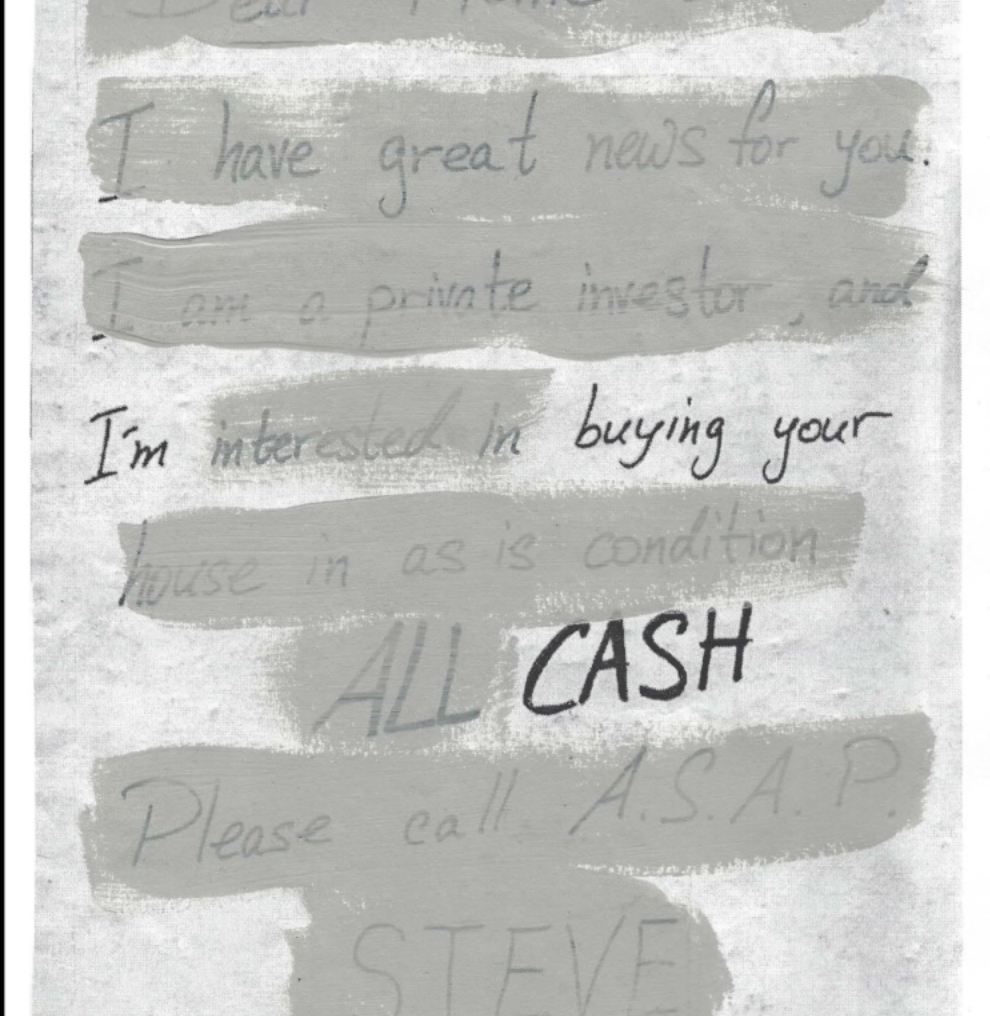 Dear Home
I have great news for you.
I am a private investor, and
I'm interested in buying your
house in as is condition
ALL CASH
Please call A.S.A.P.
STEVE